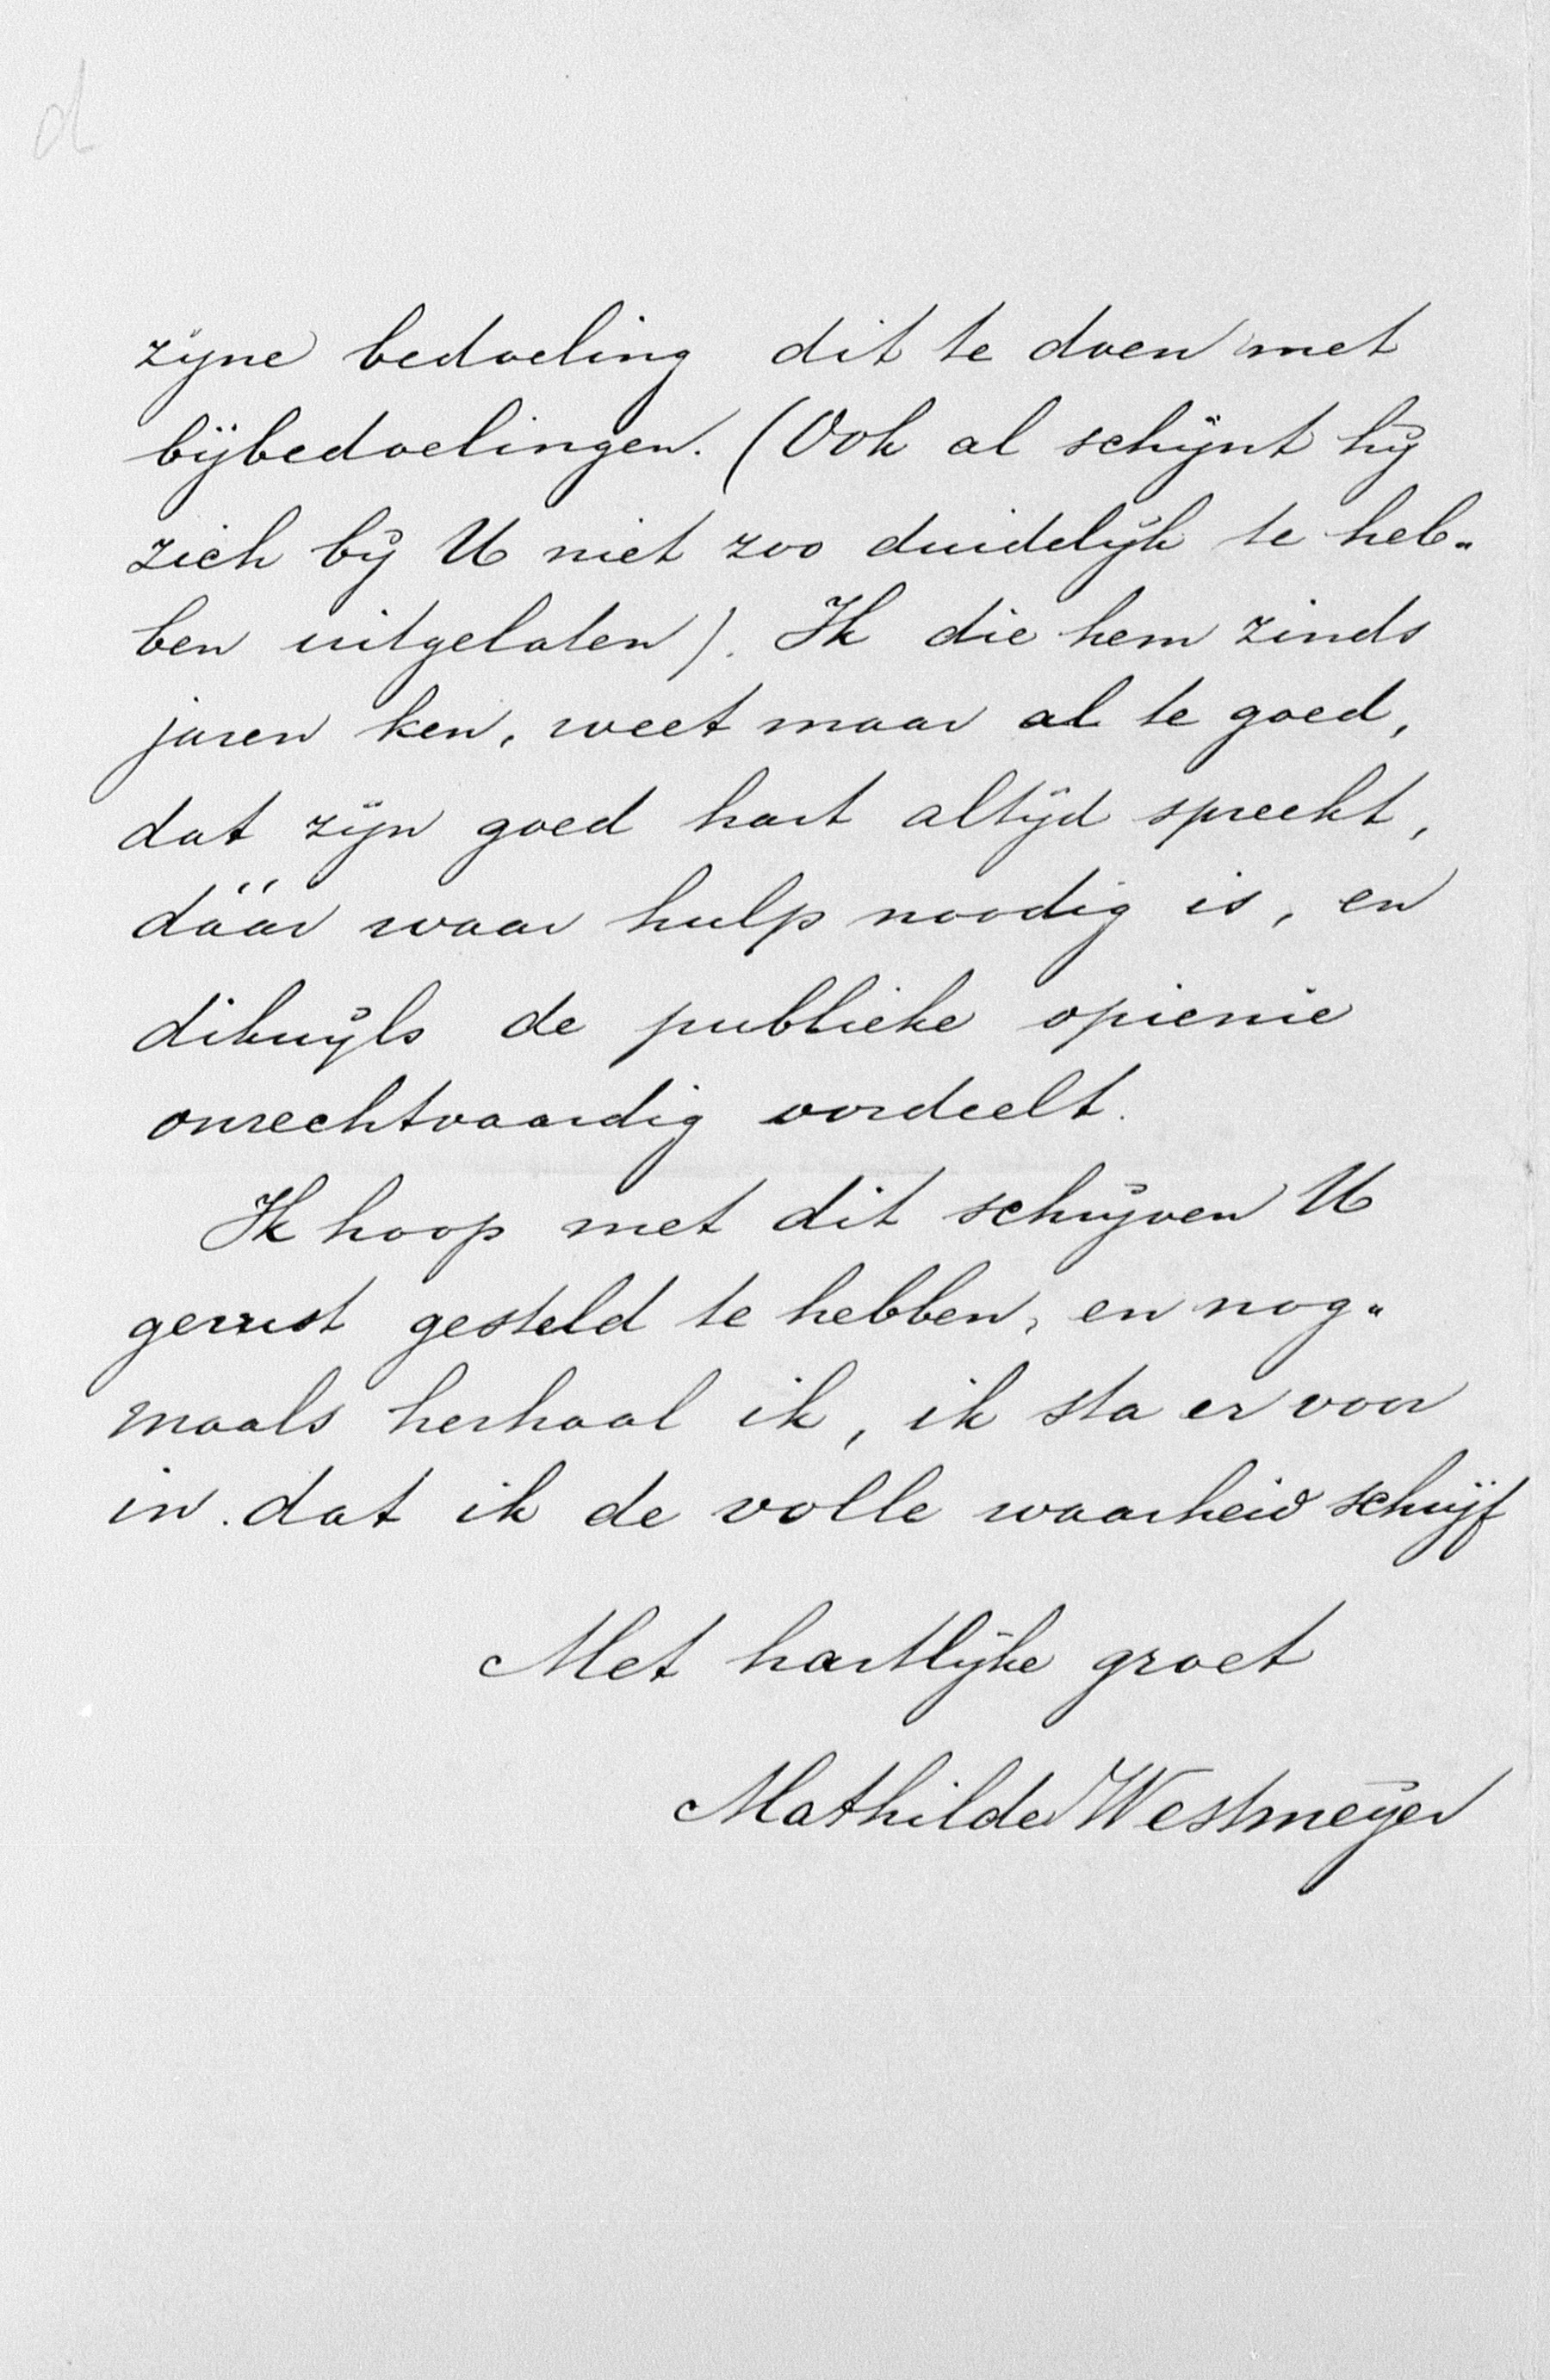 d
zijne bedoeling dit te doen met
bijbedoelingen. (Ook al schijnt hij
zich bij U niet zoo duidelijk te heb„
ben uitgelaten). Ik die hem zinds
jaren ken, weet maar al te goed,
dat zijn goed hart altijd spreekt,
dáár waar hulp noodig is, en
dikwijls de publieke opienie
onrechtvaardig oordeelt.
Ik hoop met dit schrijven U
gerust gesteld te hebben, en nog„
maals herhaal ik, ik sta er voor
in dat ik de volle waarheid schrijf
Met hartlijke groet
Mathilde Westmeijer